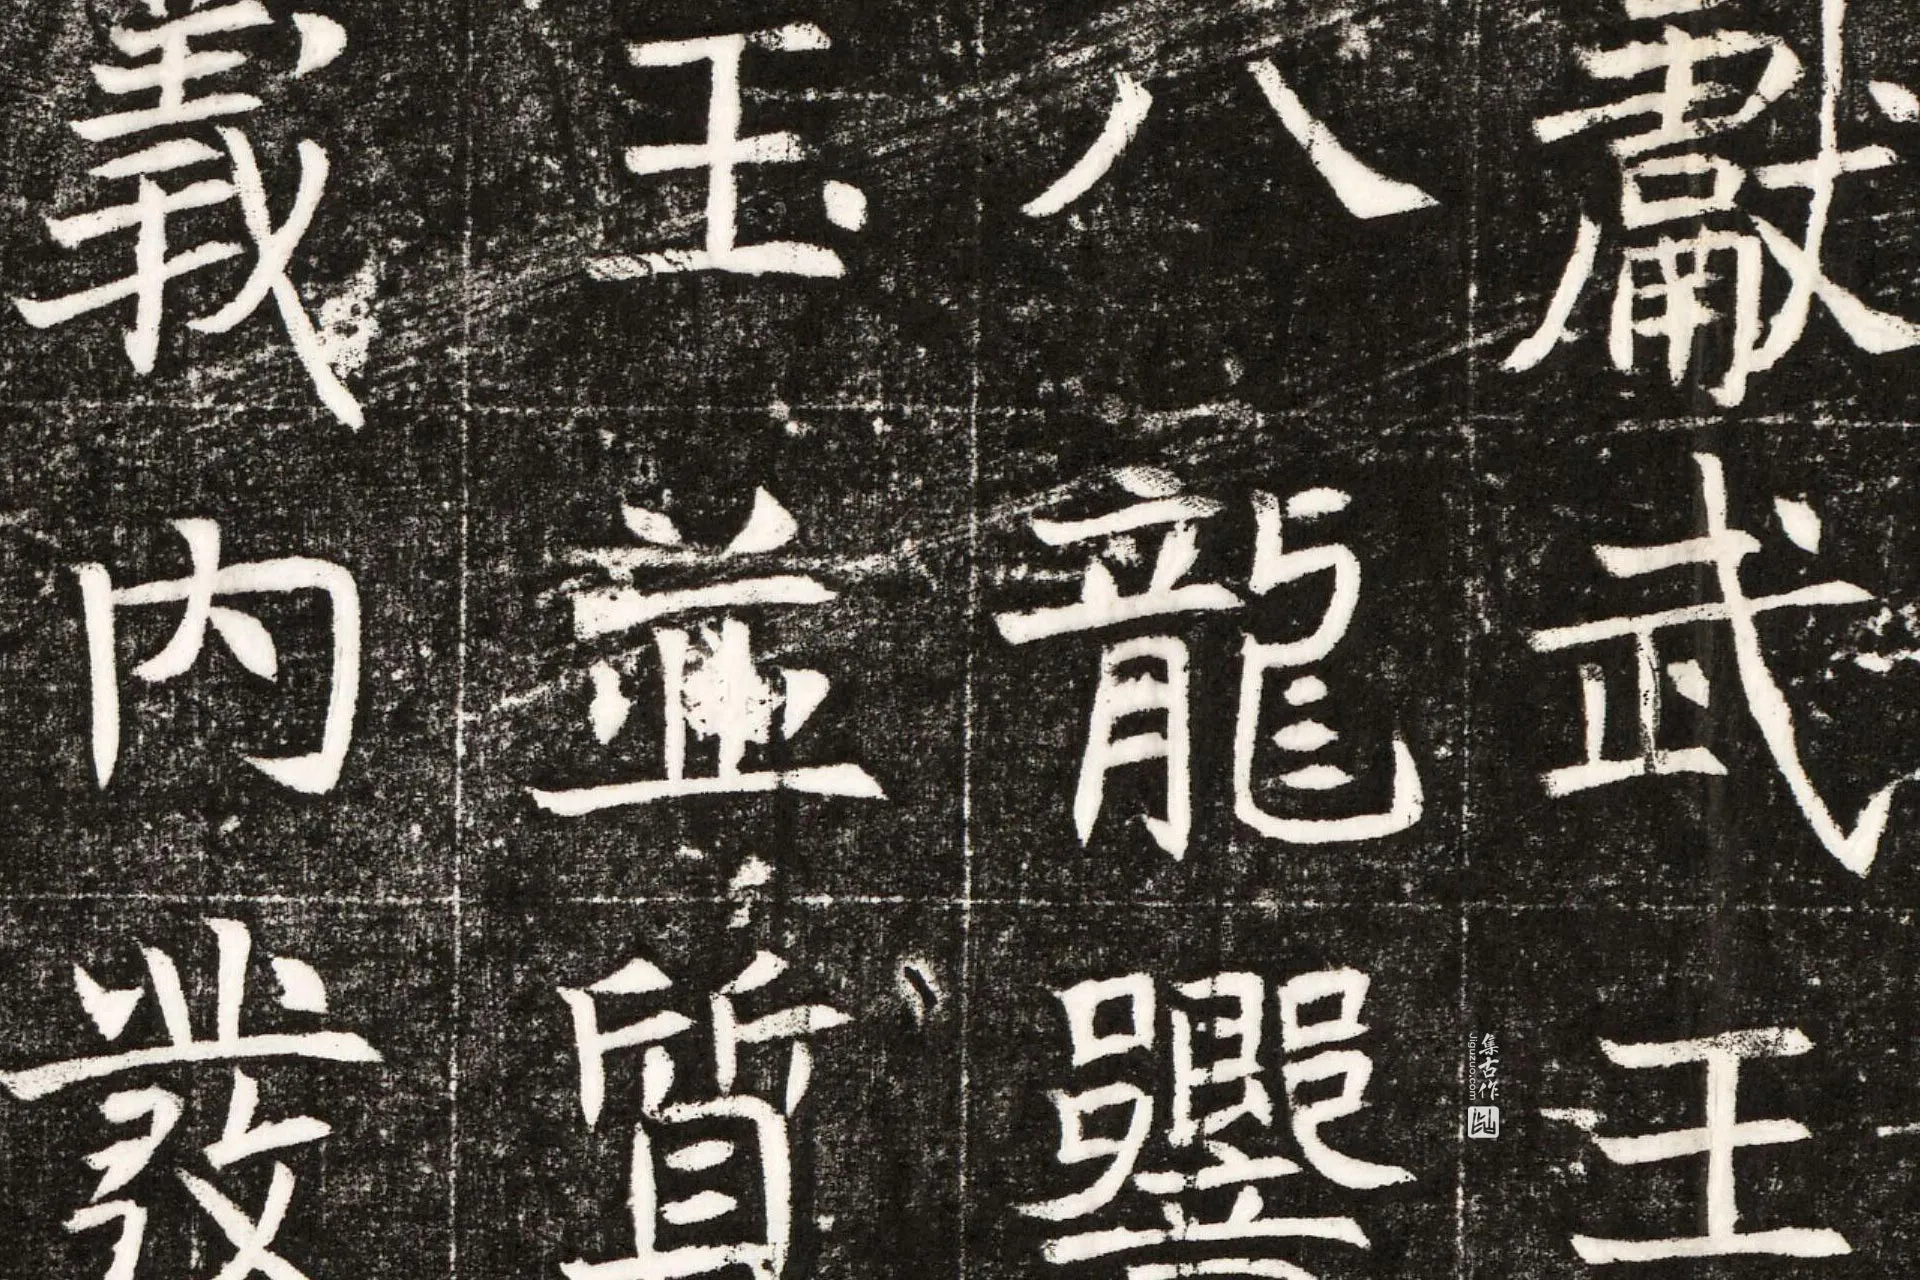 獻武王
八龍響
玉並質
義內發
集古作
jiguzuo.com